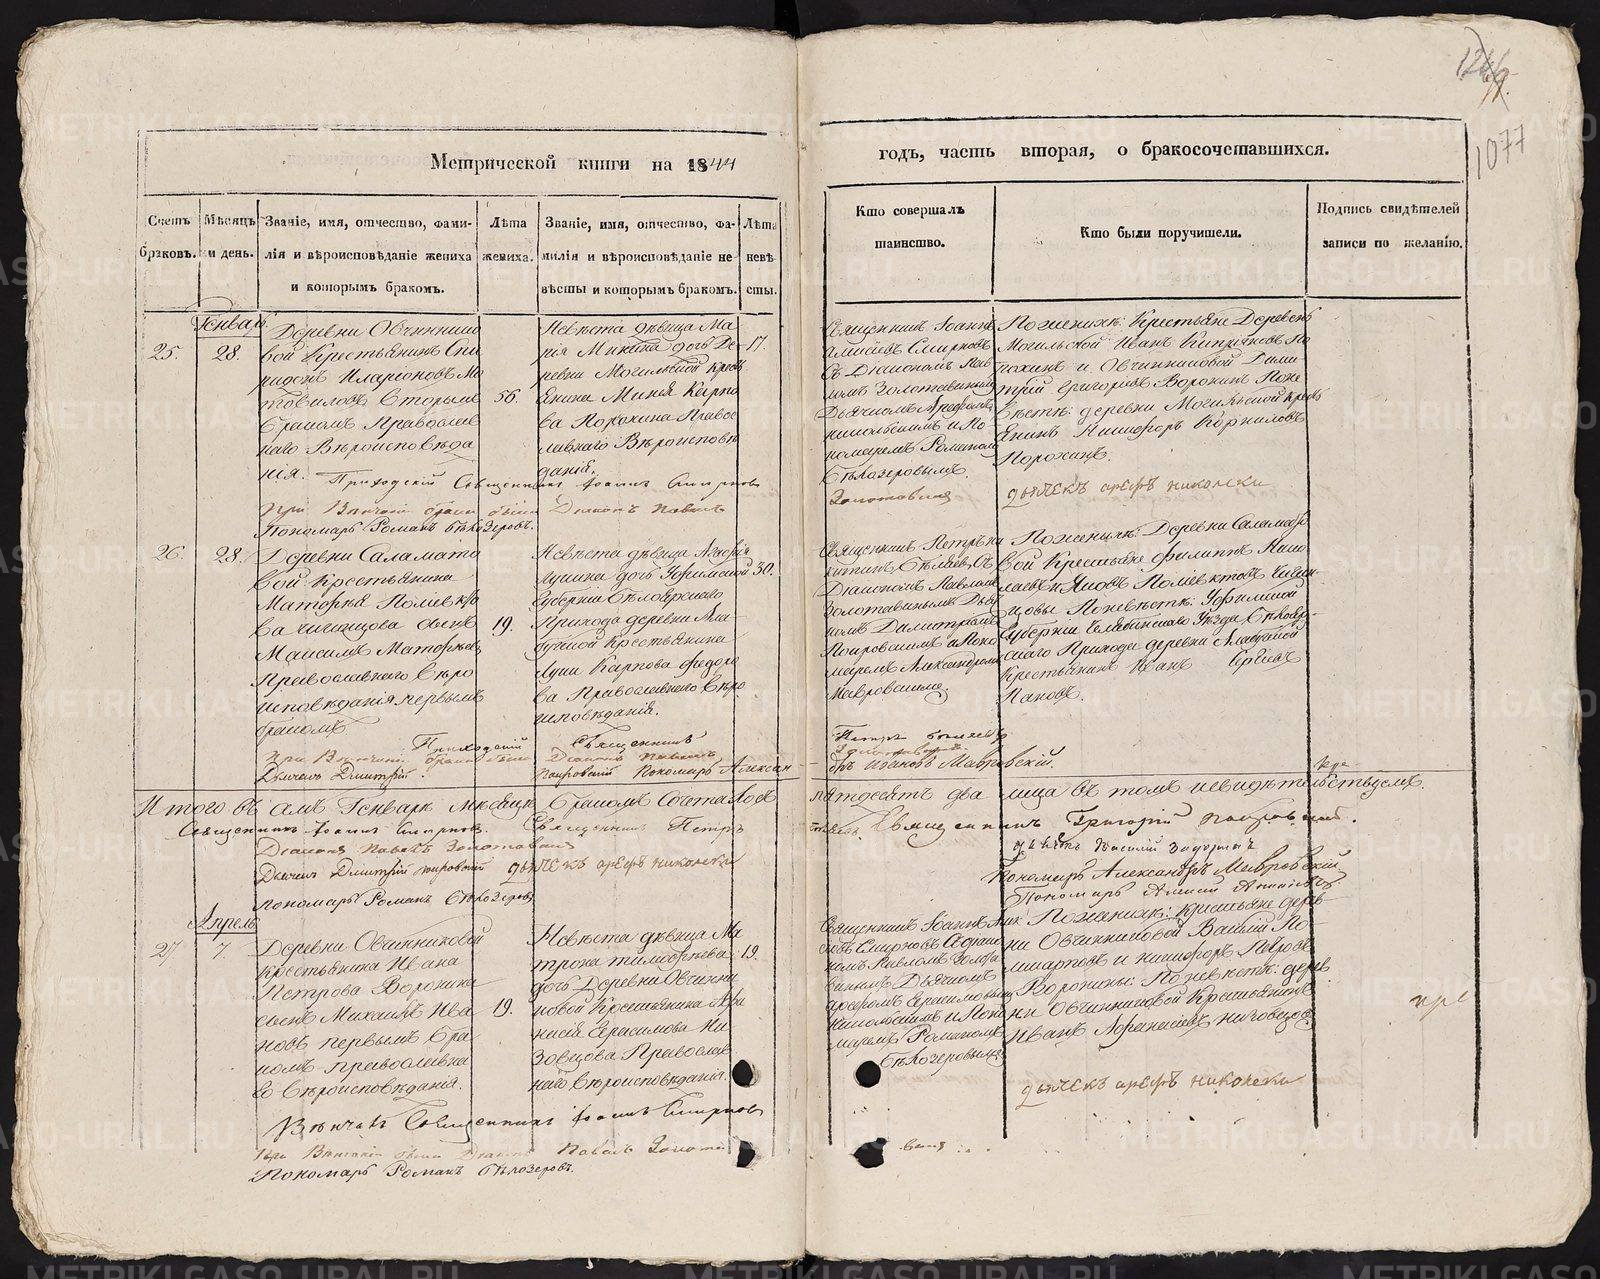 1077
Метрической книги на 1844
годъ, часть вторая, о бракосочетавшихся.
Счетъ браковъ.
Мѣсяцъ и день.
Званіе, имя, отчество, фами-
лія и вѣроисповѣданіе жениха
и которымъ бракомъ.
Лѣта
жениха.
Званіе, имя, отчество, фа-
милія и вѣроисповѣданіе не
вѣсты и которымъ бракомъ.
Лѣта
невѣ
сты.
Кто совершалъ
таинство.
Кто были поручители.
Подпись свидѣтелей
записи по желанію.
Генварь
25.
28.
Деревни Овчиннико
вой Крестьянинъ Спи
ридонъ Иларионовъ
вторымъ
бракомъ Православ
наго Вѣроисповѣда
нія.
56.
Невѣста дѣвица Ма
рія Микина дочь Де
ревни Могильной Крес
янина Микея Карпо
ва Порохина Правос
лавнаго Вѣроисповѣ
данія.
17.
Священникъ Іоаннъ
Смирновъ
съ Діакономъ Пав
ломъ Золотавинымъ
Дьячкомъ Арефомъ
Никольскимъ и По
номаремъ Романом
Бѣлозеровымъ
По женихѣ: Крестьяне Деревень
Могильской Иванъ
и Овчинниковой Дими
трій Григорьевъ Воронинъ По не
вѣстѣ: деревни Могильской Крес
янинъ Никифоръ Корниловъ
Порохинъ.
Приходскій Священникъ Іоаннъ Смирновъ
При Венчаніи брака былъ Діаконъ Павелъ
Золотавинъ
Пономарь Романъ Бѣлозеровъ.
дьячекъ арефъ николски
26.
28.
Деревни Саламато
вой Крестьянина
Матфѣя Поліевкто
ва сынъ
Максимъ Матфѣевъ
Православнаго вѣро
исповѣданія первымъ
бракомъ
19.
Невѣста дѣвица Агафія
Лукина дочь Уфимской
Губерніи Бѣлоярскаго
Прихода деревни
Крестьянина
Луки Карпова Федоро
ва Православнаго вѣро
исповѣданія.
30.
Священникъ Петръ
Бѣляевъ, съ
Діакономъ Павломъ
Золотавинымъ Дьяч
комъ Димитріемъ
Покровскимъ и Поно
маремъ Александромъ
Мавровскимъ.
По женихѣ: Деревни Саламато
вой Крестьяне Филиппъ Нико
лаевъ и Яковъ Поліевктовъ
По невѣстѣ: Уфимской
Губерніи Челябинскаго Уѣзда Бѣлояр
скаго Прихода деревни
Крестьянинъ Иванъ
Пановъ.
Приходскій Священникъ
Петръ Бѣляевъ
При Венчаніи брака былъ Діаконъ Павелъ
Золотавинъ
Дьячекъ Дмитрій Покровскій Пономарь Алексан-
дръ Ивановъ Мавровскій.
Итого въ амъ Генварѣ месяцѣ бракомъ Сочеталось
пятдесятъ два лица въ томъ и свидѣтельствуемъ.
Священникъ Іоаннъ Смирновъ. Священникъ Петръ
Бѣляевъ. Священникъ Григорій Покровской.
Діаконъ Павелъ Золотавинъ
Дьячекъ Дмитрій Покровскій дьячекъ арефъ николски
Пономарь Александръ Мавровскій
Пономарь Романъ Бѣлозеровъ
Апрель
27
7.
Деревни Овчинниковой
Крестьянина Ивана
Петрова Воронина
сынъ Михаилъ Ива
новъ первымъ бра
комъ православна
го вѣроисповѣданія.
19.
Невѣста дѣвица Ма
трона Тимофѣева
дочь Деревни Овчинни
ковой Крестьянина Афа
насія Герасимова Ни
зовцова Православ
наго вѣроисповѣданія.
19.
Священникъ Іоаннъ
Смирновъ съ Діако
номъ Павломъ Золота
винымъ Дьячкомъ
Арефомъ Герасимовымъ
Никольскимъ и Поно
маремъ Романомъ
Бѣлозеровымъ
По женихѣ: Крестьяне дерев-
ни Овчинниковой Василій По
ликарповъ и Никифоръ Петровъ
Воронины: По невѣстѣ: дерев
ни Овчинниковой Крестьянинъ
Иванъ Афанасіевъ Низовцовъ
дьячекъ арефъ николски
Вѣнчалъ Священникъ Іоаннъ Смирновъ
При Венчаніи былъ Діаконъ Павелъ Золота
винъ
Пономарь Романъ Бѣлозеровъ.
METRIKI.GASO-URAL.RU